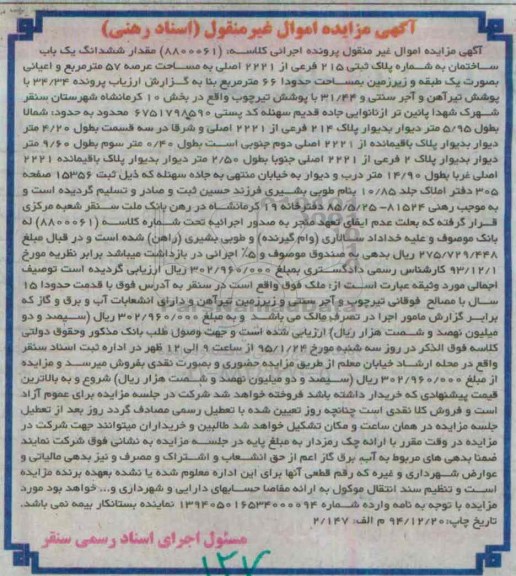 آگهی مزایده اموال غیرمنقول (اسناد رهنی)
آگهی مزایده اموال غیر منقول پرونده اجرائی کلاسه: (۸۸۰۰۰۶۱) مقدار ششدانگ یک باب
ساختمان به شماره پلاک ثبتی ۲۱۵ فرعی از ۲۲۲۱ اصلی به مساحت عرصه ۵۷ مترمربع و اعیانی
بصورت یک طبقه و زیرزمین بمساحت حدودا ۶۶ مترمربع بنا به گزارش ارزیاب پرونده ۳۴/۳۴ با
پوشش تیرآهن و آجر سنتی و ۳۱/۴۴ با پوشش تیرچوب واقع در بخش ۱۰ کرمانشاه شهرستان سنقر
شهرک شهدا پائین تر ازنانوایی جاده قدیم سهنله کد پستی ۶۷۵۱۷۹۸۵۹۰ محدود به حدود: شمالا
بطول ۵/۹۵ متر دیوار بدیوار پلاک ۲۱۴ فرعی از ۲۲۲۱ اصلی و شرقا در سه قسمت بطول ۴/۲۰ متر
دیوار بدیوار پلاک باقیمانده از ۲۲۲۱ اصلی دوم جنوبی است بطول ۰/۴۰ متر سوم بطول ۹/۶۰ متر
دیوار بدیوار پلاک ۲ فرعی از ۲۲۲۱ اصلی جنوبا بطول ۲/۵۰ متر دیوار بدیوار پلاک باقیمانده ۲۲۲۱
اصلی غربا بطول ۱۴/۹۰ متر درب و دیوار به خیابان منتهی به جاده سهنله که ذیل ثبت ۱۵۳۵۶ صفحه
۳۰۵ دفتر املاک جلد ۱۰/۸۵ بنام طوبی بشیری فرزند حسین ثبت و صادر و تسلیم گردیده است و
به موجب رهنی ۸۱۵۲۴- ۸۵/۵/۲۵ دفترخانه ۱۹ کرمانشاه در رهن بانک ملت سنقر شعبه مرکزی
قرار گرفته که بعلت عدم ایفای تعهد منجر به صدور اجرائیه تحت شماره کلاسه (۸۸۰۰۰۶۱) له
بانک موصوف و علیه خداداد سالاری (وام گیرنده) و طوبی بشیری (راهن) شده است و در قبال مبلغ
۲۷۵/۷۲۹/۴۴۸ ریال بدهی به صندوق موصوف و ۵٪ اجرائی در بازداشت میباشد برابر نظریه مورخ
۹۳/۱۲/۱ کارشناس رسمی دادگستری بمبلغ ۳۰۲/۹۶۰/۰۰۰ ریال ارزیابی گردیده است توصیف
اجمالی مورد وثیقه عبارت است از: ملک فوق واقع است در سنقر به آدرس فوق با قدمت حدودا ۱۵
سال با مصالح فوقانی تیرچوب و آجر سنتی و زیرزمین تیرآهن و دارای انشعابات آب و برق و گاز که
برابر گزارش مامور اجرا در تصرف مالک می باشد و به مبلغ ۳۰۲/۹۶۰/۰۰۰ ریال (سیصد و دو
میلیون نهصد و شصت هزار ریال) ارزیابی شده است و جهت وصول طلب بانک مذکور وحقوق دولتی
کلاسه فوق الذکر در روز سه شنبه مورخ ۹۵/۱/۲۴ از ساعت ۹ الی ۱۲ ظهر در اداره ثبت اسناد سنقر
واقع در محله ارشاد خیابان معلم از طریق مزایده حضوری و بصورت نقدی بفروش میرسد و مزایده
از مبلغ ۳۰۲/۹۶۰/۰۰۰ ریال (سیصد و دو میلیون نهصد و شصت هزار ریال) شروع و به بالاترین
قیمت پیشنهادی که خریدار داشته باشد فروخته خواهد شد شرکت در جلسه مزایده برای عموم آزاد
است و فروش کلا نقدی است چنانچه روز تعیین شده با تعطیل رسمی مصادف گردد روز بعد از تعطیل
جلسه مزایده در همان ساعت و مکان تشکیل خواهد شد طالبین و خریداران میتوانند جهت شرکت در
مزایده در وقت مقرر با ارائه چک رمزدار به مبلغ پایه در جلسه مزایده به نشانی فوق شرکت نمایند
ضمنا بدهی های مربوط به آب، برق گاز اعم از حق انشعاب و اشتراک و مصرف و نیز بدهی مالیاتی و
عوارض شهرداری و غیره که رقم قطعی آنها برای این اداره معلوم شده یا نشده بعهده برنده مزایده
است و تنظیم سند انتقال موکول به ارائه مفاصا حسابهای دارایی و شهرداری و... خواهد بود مورد
مزایده با توجه به نامه وارده شماره ۱۳۹۴۰۵۰۱۶۵۳۴۰۰۰۰۹۴ نماینده بستانکار بیمه نمی باشد.
تاریخ چاپ: ۹۴/۱۲/۲۰ م الف: ۲/۱۴۷
مسئول اجرای اسناد رسمی سنقر
۱۲۷